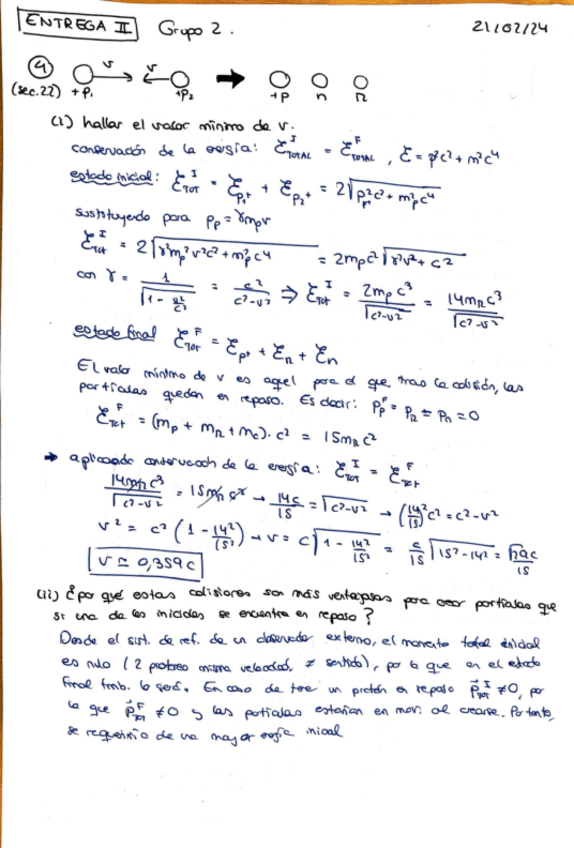 ENTREGA II Grupo 2. 21/02/24
4 v v
(sec.22) +P₁ +P₂ +P n π
(i) hallar el valor mínimo de v.
conservación de la energía: ℰ^I_TOTAL = ℰ^F_TOTAL , ℰ = p²c² + m²c⁴
estado inicial: ℰ^I_TOT = ℰ_P₁⁺ + ℰ_P₂⁺ = 2√(p²_p⁺c² + m²_p c⁴)
sustituyendo para p_p = γm_p v
ℰ^I_TOT = 2√(γ²m_p²v²c² + m²_p c⁴) = 2m_p c²√(γ²v² + c²)
con γ = 1/√(1 - v²/c²) = c²/(c²-v²) ⇒ ℰ^I_TOT = 2m_p c³/√(c²-v²) = 14m_π c³/√(c²-v²)
estado final ℰ^F_TOT = ℰ_p⁺ + ℰ_n + ℰ_π
El valor mínimo de v es aquel para el que, tras la colisión, las
partículas quedan en reposo. Es decir: p^F_p = p_π = p_n = 0
ℰ^F_TOT = (m_p + m_π + m_n)·c² = 15m_π c²
→ aplicando conservación de la energía: ℰ^I_TOT = ℰ^F_TOT
14m_π c³/√(c²-v²) = 15m_π c² → 14c/15 = √(c²-v²) → (14/15)²c² = c²-v²
v² = c² (1 - 14²/15²) → v = c√(1 - 14²/15²) = c/15 √(15²-14²) = √29c/15
v ≃ 0,359c
(ii) ¿por qué estas colisiones son más ventajosas para crear partículas que
si una de las iniciales se encuentra en reposo?
Desde el sist. de ref. de un observador externo, el momento total inicial
es nulo (2 protones misma velocidad, ≠ sentido), por lo que en el estado
final tmb. lo será. En caso de tener un protón en reposo p⃗^I_TOT ≠ 0, por
lo que p⃗^F_TOT ≠ 0 y las partículas estarían en mov. al crearse. Por tanto,
se requeriría de una mayor energía inicial